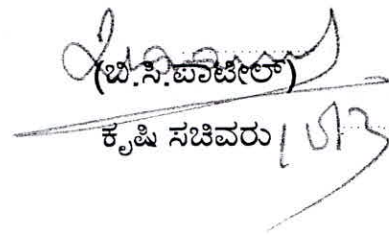 (ಬಿ.ಸಿ.ಪಾಟೀಲ್)
ಕೃಷಿ ಸಚಿವರು